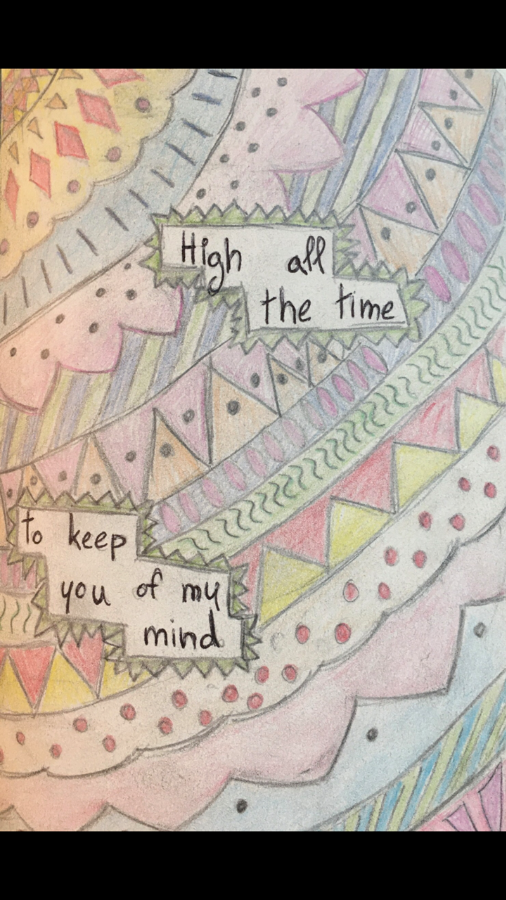 High all
the time
to keep
you of my
mind